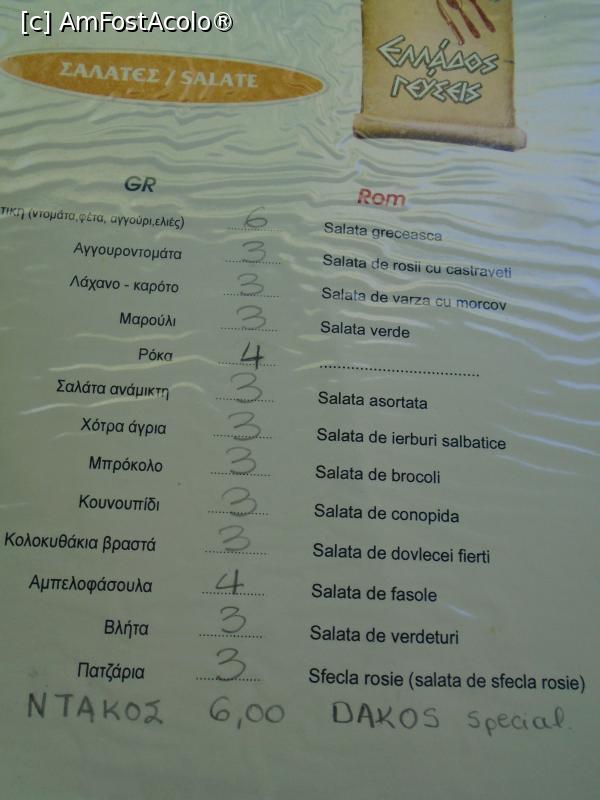 [c] AmFostAcolo®
ΣΑΛΑΤΕΣ / SALATE
Ελλάδος
γεύσεις
GR Rom
τική (ντομάτα,φέτα, αγγούρι,ελιές) 6 Salata greceasca
Αγγουροντομάτα 3 Salata de rosii cu castraveti
Λάχανο - καρότο 3 Salata de varza cu morcov
Μαρούλι 3 Salata verde
Ρόκα 4 ..................................
Σαλάτα ανάμικτη 3 Salata asortata
Χότρα άγρια 3 Salata de ierburi salbatice
Μπρόκολο 3 Salata de brocoli
Κουνουπίδι 3 Salata de conopida
Κολοκυθάκια βραστά 3 Salata de dovlecei fierti
Αμπελοφάσουλα 4 Salata de fasole
Βλήτα 3 Salata de verdeturi
Πατζάρια 3 Sfecla rosie (salata de sfecla rosie)
ΝΤΑΚΟΣ 6,00 DAKOS special.